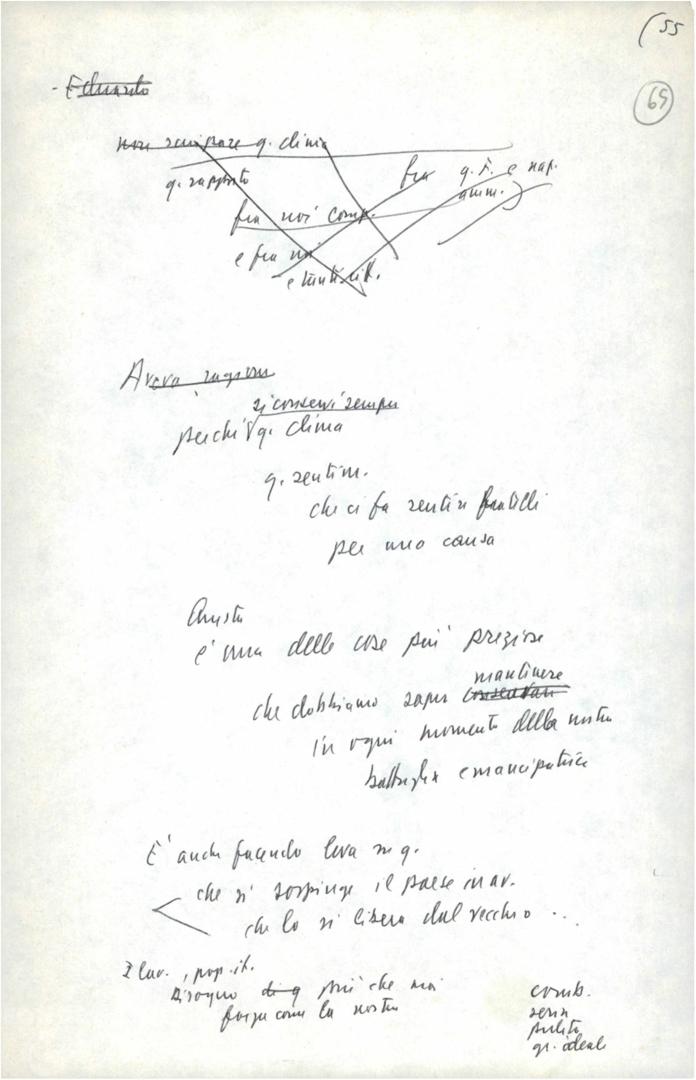 (55
65
- Eduardo
non sciupare q. clima
q. rapporto
fra q. F. e nap.
amm.)
fra noi comp.
e fra noi
e tanti
Aveva ragione
si conservi sempre
perchè q. clima
q. sentim.
che ci fa sentire fratelli
per una causa
Questa
è una delle cose più preziose
mantenere
che dobbiamo saper conservare
in ogni momento della nostra
battaglia emancipatrice
E' anche facendo leva su q.
che si sospinge il paese in av.
che lo si libera dal vecchio ...
I lav., pop. it.
bisogno di q più che mai
forza come la nostra
comb.
seria
pulita
gr. ideali